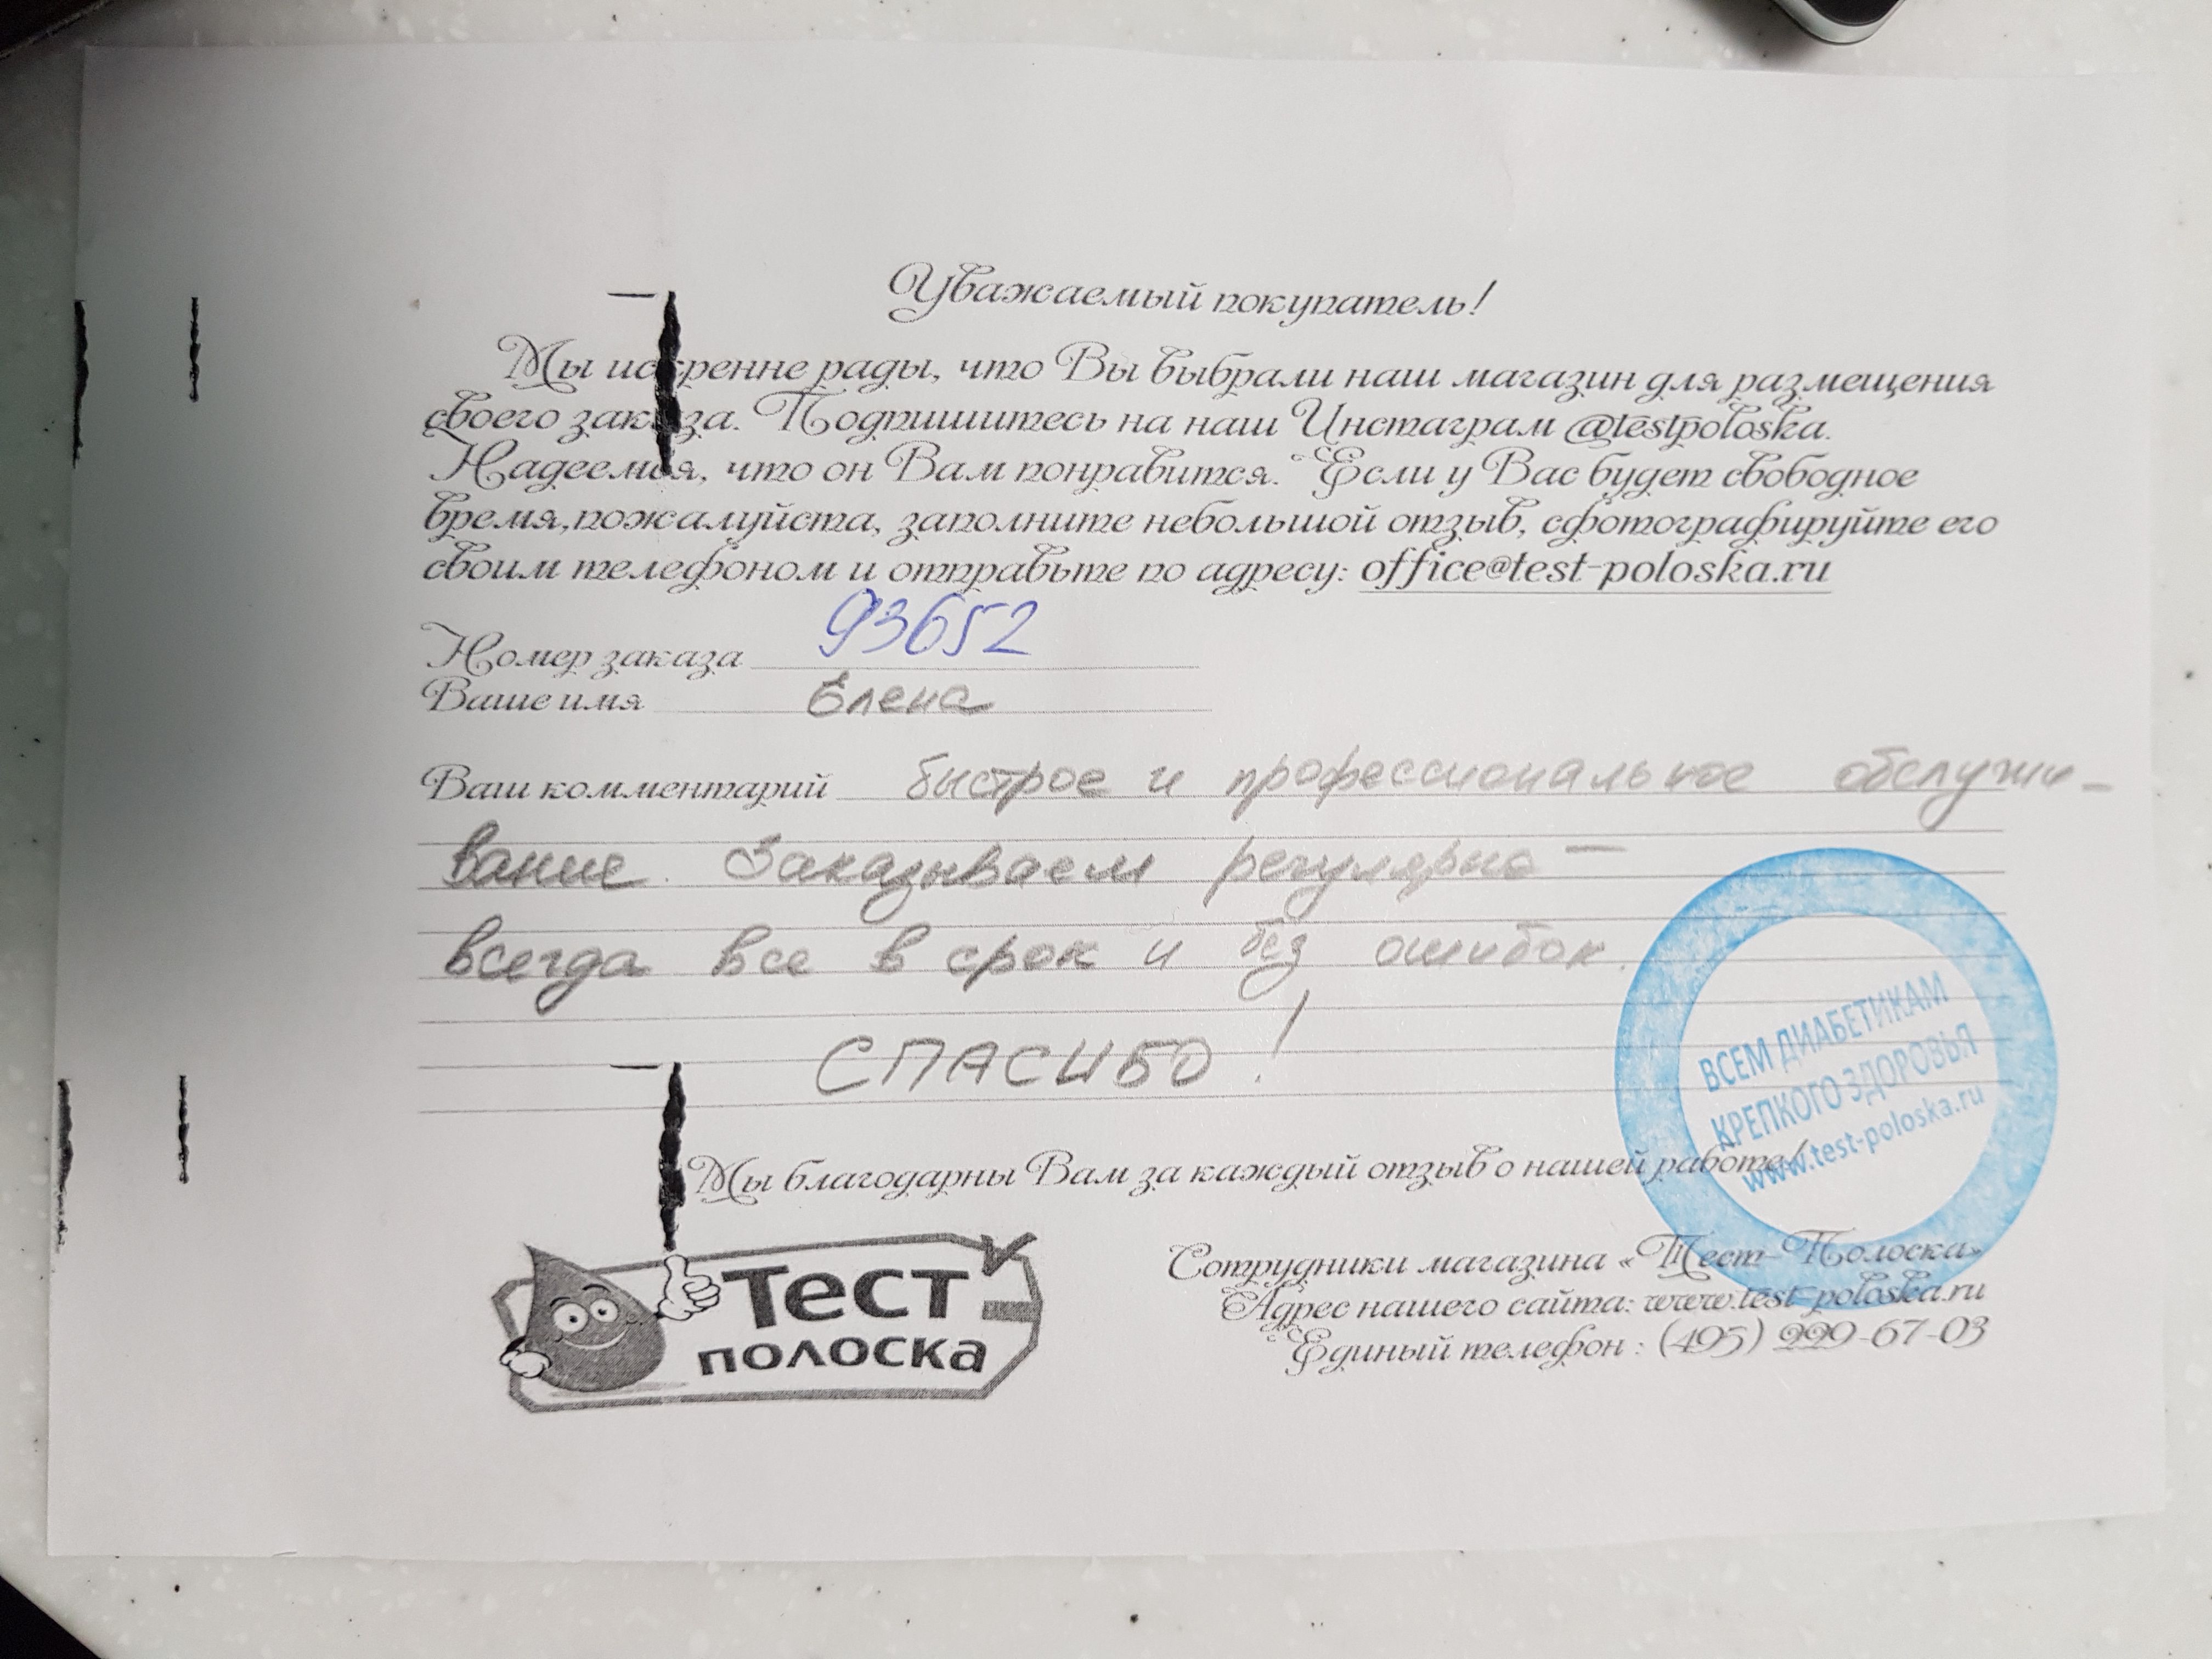 Уважаемый покупатель!
Мы искренне рады, что Вы выбрали наш магазин для размещения
своего заказа. Подпишитесь на наш Инстаграм @testpoloska.
Надеемся, что он Вам понравится. Если у Вас будет свободное
время,пожалуйста, заполните небольшой отзыв, сфотографируйте его
своим телефоном и отправьте по адресу: office@test-poloska.ru
Номер заказа 93652
Ваше имя Елена
Ваш комментарий быстрое и профессиональное обслужи-
вание. Заказываем регулярно —
всегда все в срок и без ошибок.
СПАСИБО!
ВСЕМ ДИАБЕТИКАМ
КРЕПКОГО ЗДОРОВЬЯ
www.test-poloska.ru
Мы благодарны Вам за каждый отзыв о нашей работе!
Тест
полоска
Сотрудники магазина «Тест-Полоска»
Адрес нашего сайта: www.test-poloska.ru
Единый телефон : (495) 229-67-03